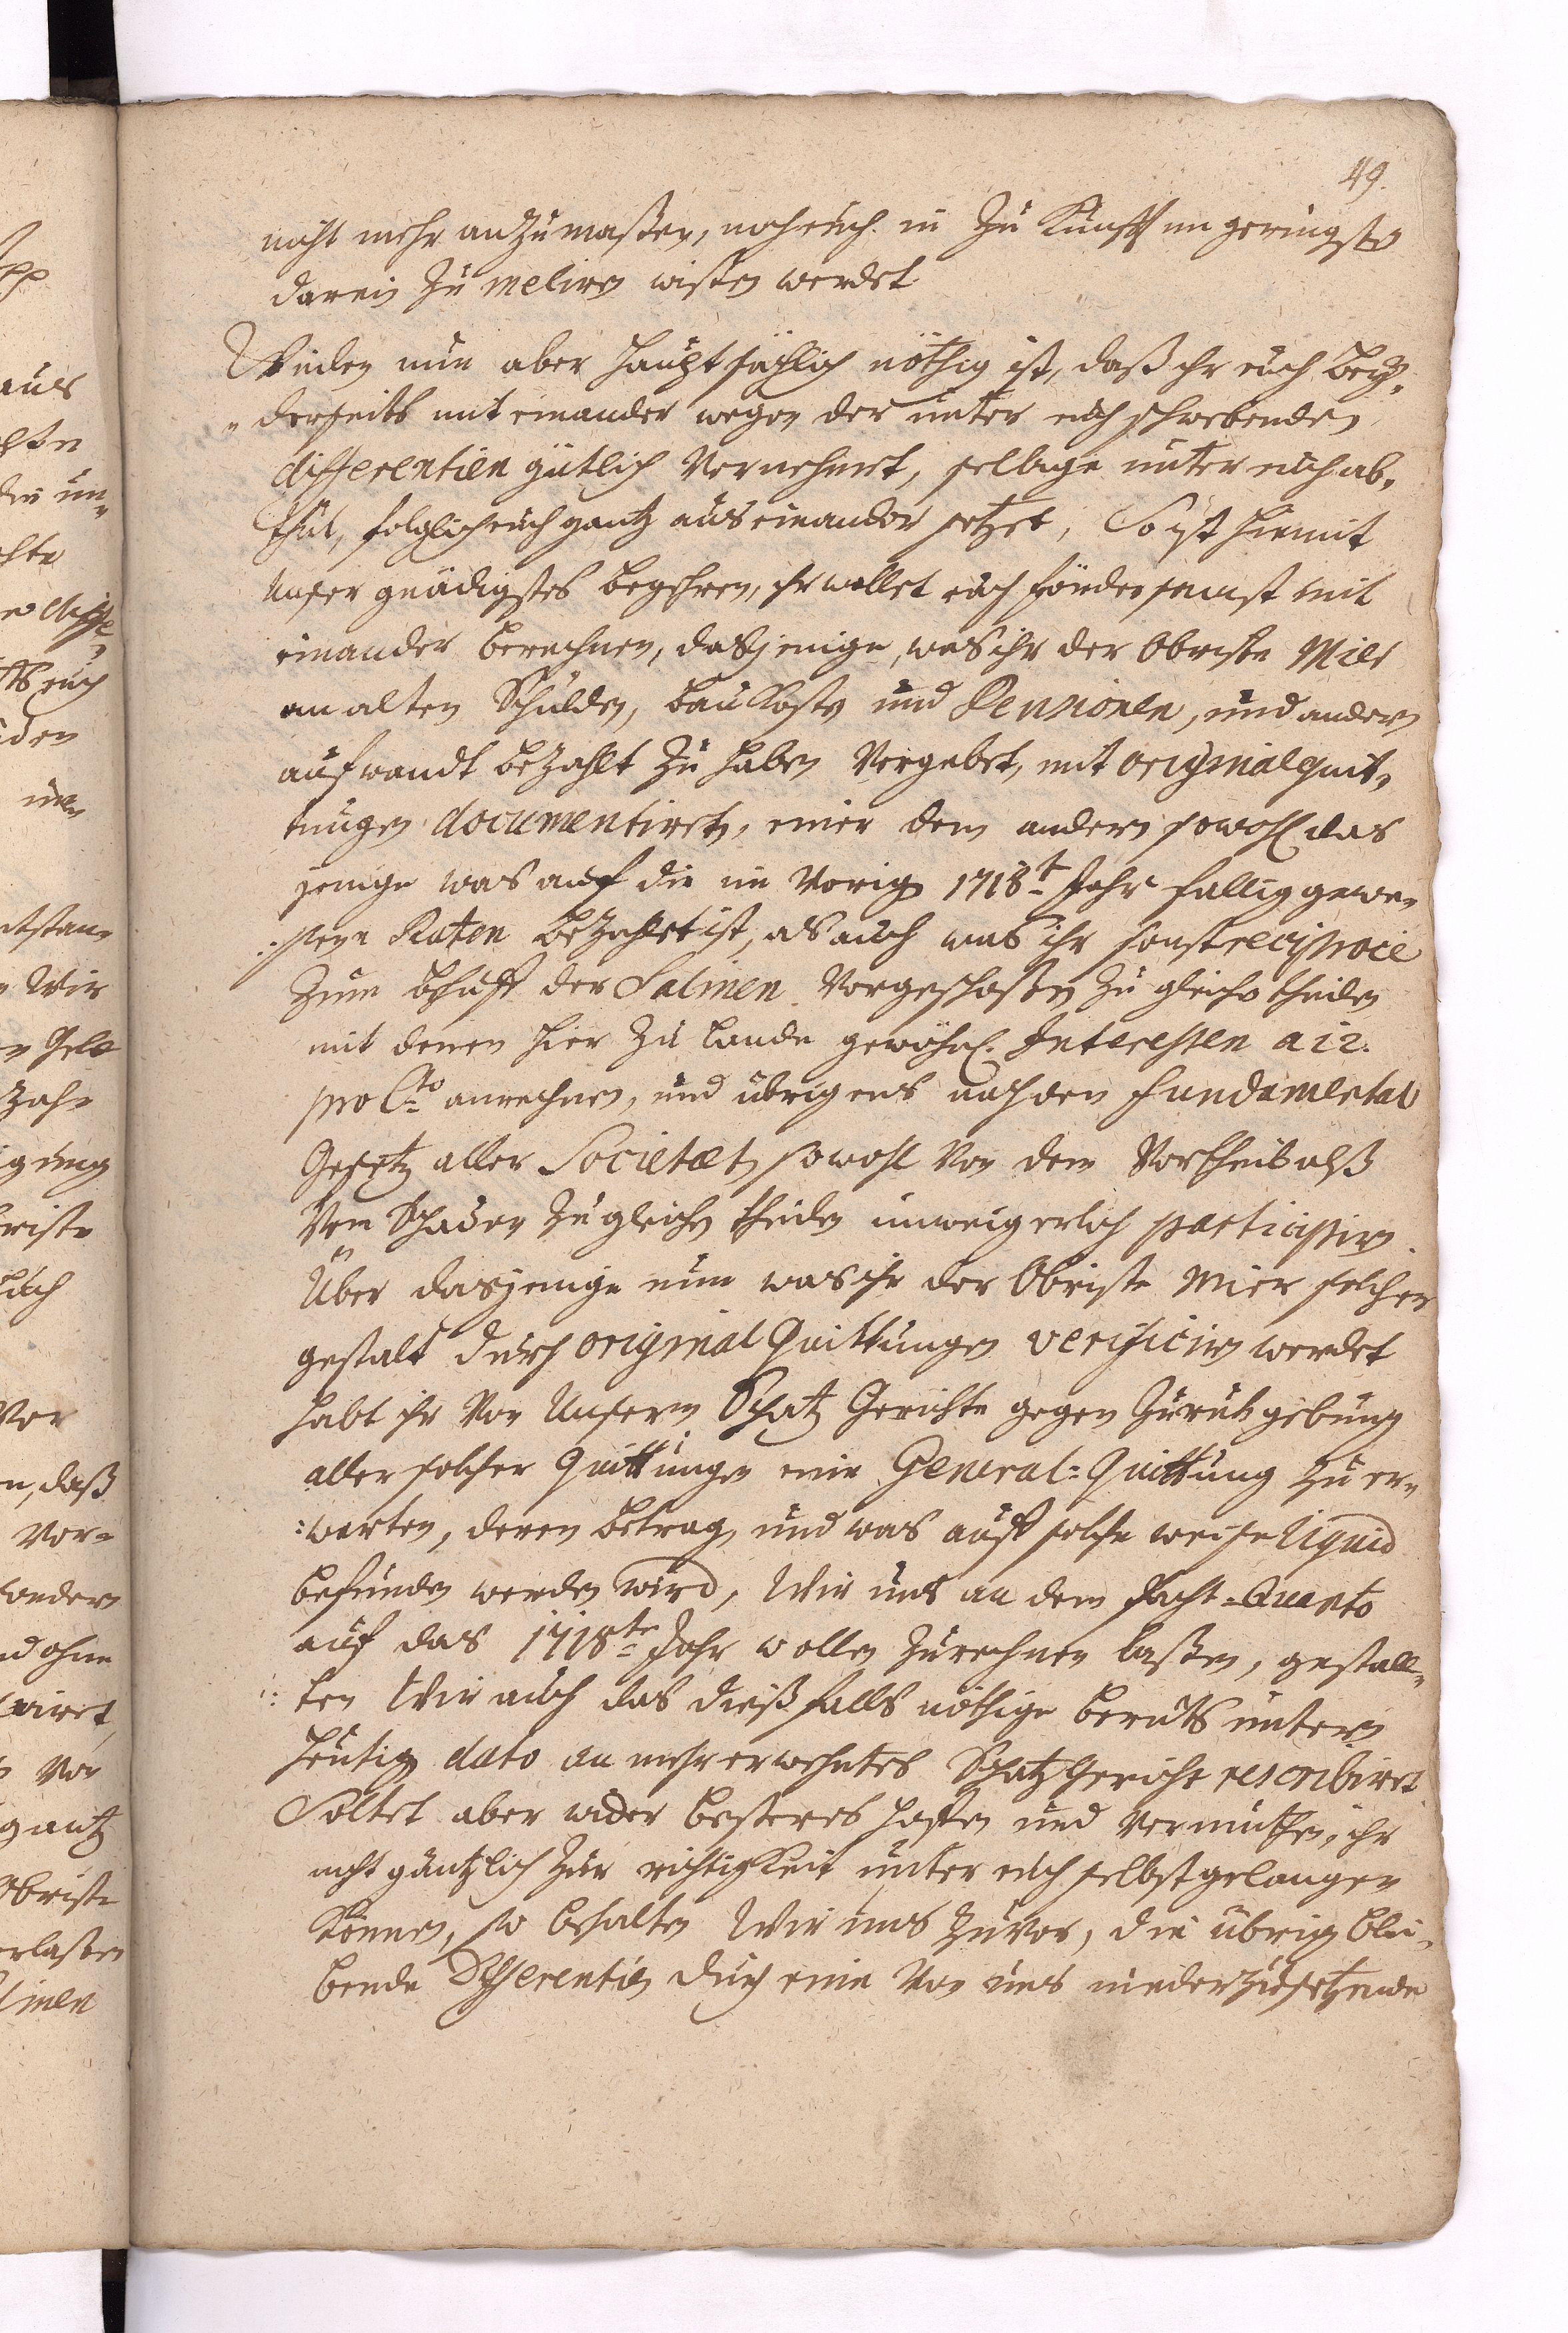 49.
nicht mehr anzumaßen, noch euch in Zukunfft im geringsten
darein zu meliren wißen werdet
Wieden nun aber hauptsächlich nöthig ist, daß ihr euch bey„
„derseits mit einander wegen der unter euch schwebenden
differentien gütlich vernehmet, selbige unter euch ab„
thut, folglich euch gantz auseinander setzet, So ist hiemit
Unser gnädigstes begehren, ihr wollet euch fördersamst mit
einander berechnen, dasjenige, was ihr der Obriste Mier
an alten Schulden, baukosten und Pensionen, und andern
aufwandt bezahlt zu haben vorgebet, mit original quit„
tungen documentiren, einer dem andern sowohl das
jenige was auf die im vorigen 1718t Jahr fällig gewe„
:sene Raten bezahlet ist, als auch was ihr sonst reciproce
zum behuff der Salinen vorgeschoßen zu gleichen theilen
mit denen hier zu lande gewöhnl. Interessen a 12.
pro Cto anrechnen, und übrigens nach den fundamental
Gesetz aller Societæten sowohl von dem Vortheil alß
vom Schaden zu gleichen theilen unweigerlich participiren.
Über dasjenige nun was ihr der Obriste Mier solcher
gestalt durch original Quittungen verificiren werdet
habt ihr von Unserm Schatz Gerichte gegen Zurükgebung
aller solcher Quittungen eine General=Quittung zu er„
:warten, deren betrag, und was auf solche weise liquid
befunden werden wird, Wir uns an dem Pacht=Quanto
auf das 1718te Jahr wollen zurechnen laßen, gestall„
:ten Wir auch das dießfalls nöthige bereits unterm
heutigen dato an mehrerwehntes Schatz Gericht rescribiret.
Soltet aber wider beßeres hoffen und vermuthen, ihr
nicht gäntzlich zur richtigkeit unter euch selbst gelangen
können, so behalten Wir uns zuvor, die übrig blei„
bende Differentien durch eine von uns niederzusetzende